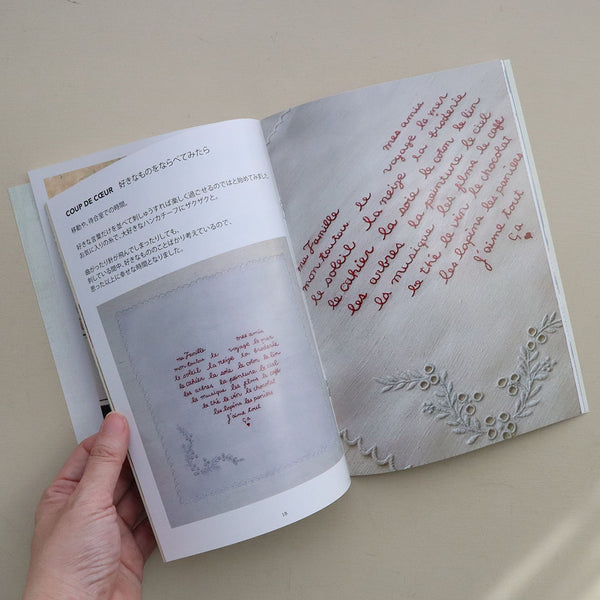 COUP DE CŒUR 好きなものをならべてみたら
移動や、待合室での時間。
好きな言葉だけを並べて刺しゅうすれば楽しく過ごせるのではと始めてみました
お気に入りの糸で、大好きなハンカチーフにザクザクと。
曲がったり針が飛んでしまったりしても、
刺している間中、好きなもののことばかり考えているので、
思った以上に幸せな時間となりました。
ma Famille mes amis
mon toutou le voyage la mer
le soleil la neige la broderie
le cahier la soie le coton le lin
les arbres la peinture le ciel
la musique les films le café
le thé le vin le chocolat
les lapins les pensées
j'aime tout
ça
18
ma Famille mes amis
mon toutou le voyage la mer
le soleil la neige la broderie
le cahier la soie le coton le lin
les arbres la peinture le ciel
la musique les films le café
le thé le vin le chocolat
les lapins les pensées
j'aime tout
ça